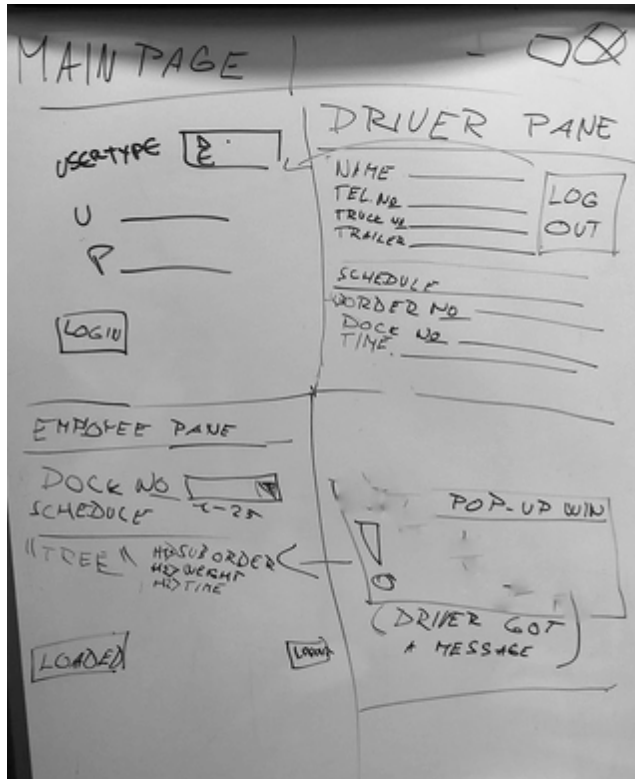 MAIN PAGE
USERTYPE D
E
U
P
LOGIN
DRIVER PANE
NAME
TEL. NO
TRUCK NO
TRAILER
LOG
OUT
SCHEDULE
ORDER NO
DOCK NO
TIME
EMPOYEE PANE
DOCK NO
SCHEDULE 1-25
"TREE" H1>SUBORDER
H2>WEIGHT
H2>TIME
LOADED
LOGOUT
POP-UP WIN
!
(DRIVER GOT
A MESSAGE)